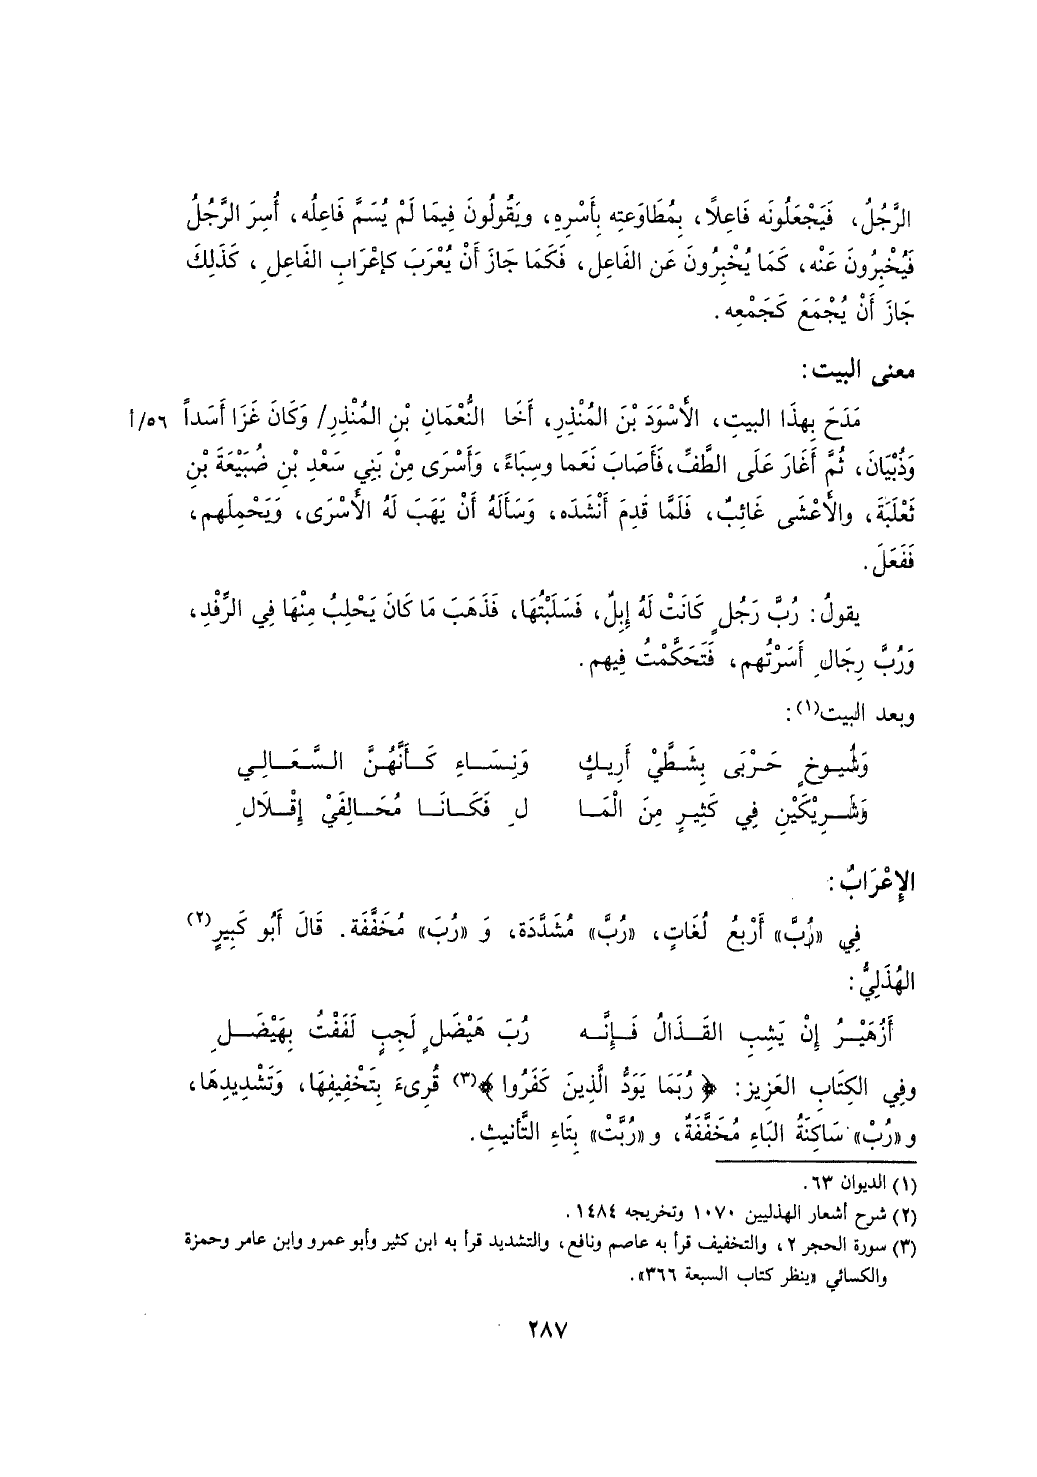 الرَّجُلُ، فَيَجْعَلُونَه فَاعِلاً، بِمُطَاوَعتِه بِأَسْرِهِ، ويَقُولُونَ فِيمَا لَمْ يُسَمَّ فَاعِلُه، أُسِرَ الرَّجُلُ
فَيُخْبِرُونَ عَنْه، كَمَا يُخْبِرُونَ عَن الفَاعِل، فَكَمَا جَازَ أَنْ يُعْرَبَ كإعْرَابِ الفَاعِلِ، كَذَلِكَ
جَازَ أَنْ يُجْمَعَ كَجَمْعِه.
معنى البيت:
مَدَحَ بِهذَا البيتِ، الأَسْوَدَ بْنَ المُنْذِرِ، أَخَا النُّعْمَانِ بْنِ المُنْذِرِ/ وَكَانَ غَزَا أَسَداً ٥٦/أ
وَذُبْيَانَ، ثُمَّ أَغَارَ عَلَى الطَّفِّ، فَأَصَابَ نَعَما وسِبَاءً، وَأَسْرَى مِنْ بَنِي سَعْدِ بْنِ ضُبَيْعَةَ بْنِ
ثَعْلَبَةَ، والأَعْشَى غَائِبٌ، فَلَمَّا قَدِمَ أَنْشَدَه، وَسَأَلَهُ أَنْ يَهَبَ لَهُ الأَسْرَى، وَيَحْمِلَهم،
فَفَعَلَ.
يقولُ: رُبَّ رَجُلٍ كَانَتْ لَهُ إِبِلٌ، فَسَلَبْتُهَا، فَذَهَبَ مَا كَانَ يَحْلِبُ مِنْهَا فِي الرِّفْدِ،
وَرُبَّ رِجَالِ أَسَرْتُهم، فَتَحَكَّمْتُ فِيهم.
وبعد البيت(١):
وَشُيوخٍ حَرْبَى بِشَطَّيْ أَرِيكٍ وَنِسَاءٍ كَأَنَّهُنَّ السَّعَالِي
وَشَرِيْكَيْنِ فِي كَثِيرٍ مِنَ الْمَا لِ فَكَانَا مُحَالِفَيْ إِقْلَالِ
الإِعْرَابُ:
فِي «رُبَّ» أَرْبَعُ لُغَاتٍ، «رُبَّ» مُشَدَّدَة، وَ «رُبَ» مُخَفَّفَة. قَالَ أَبُو كَبِيرٍ(٢)
الهُذَلِيُّ:
أَزُهَيْرُ إِنْ يَشِبِ القَذَالُ فَإِنَّه رُبَ هَيْضَلٍ لَجِبٍ لَفَفْتُ بِهَيْضَلِ
وفِي الكِتَابِ العَزِيز: ﴿ رُبَمَا يَوَدُّ الَّذِينَ كَفَرُوا ﴾(٣) قُرِىءَ بِتَخْفِيفِهَا، وَتَشْدِيدِهَا،
و«رُبْ» سَاكِنَةُ البَاءِ مُخَفَّفَةٌ، و«رُبَّتْ» بِتَاءِ التَّأنيثِ.
(١) الديوان ٦٣.
(٢) شرح أشعار الهذليين ١٠٧٠ وتخريجه ١٤٨٤.
(٣) سورة الحجر ٢، والتخفيف قرأ به عاصم ونافع، والتشديد قرأ به ابن كثير وأبو عمرو وابن عامر وحمزة
والكسائي «ينظر كتاب السبعة ٣٦٦».
٢٨٧